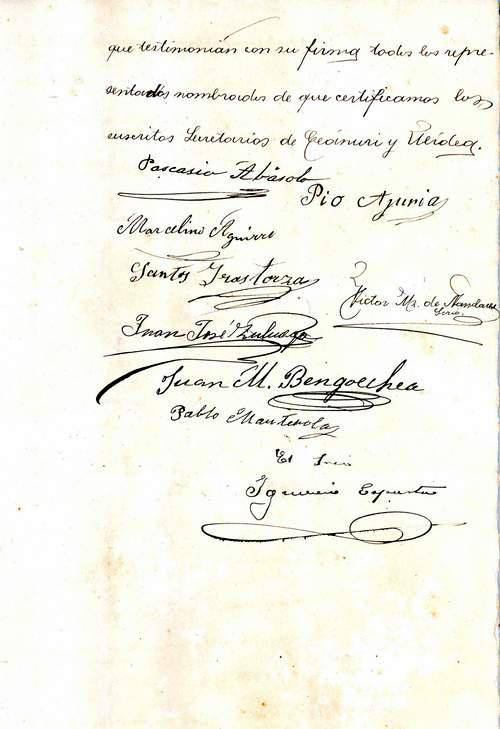 que testimonian con su firma todos los repre-
sentados nombrados de que certificamos los
suscritos Secretarios de Ceánuri y Ubidea.
Pascasio Abásolo
Pio Ajuria
Marcelino Aguirre
Santos Irastorza
Victor Mz. de
Srio.
Juan José Zuluaga
Juan M. Bengoechea
Pablo Manterola
El Srio
Ignacio